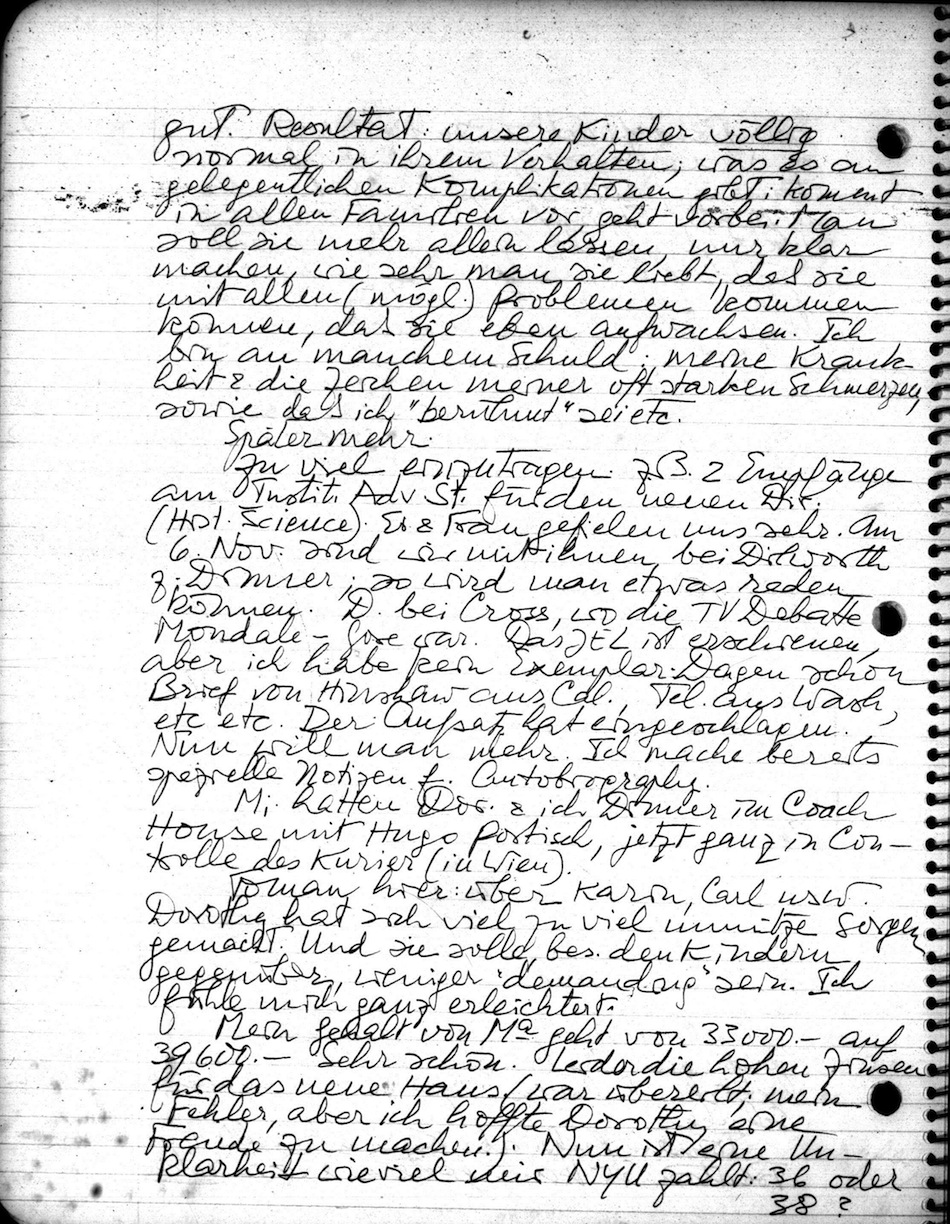 gut. Resultat: unsere Kinder völlig
normal in ihrem Verhalten; was es an
gelegentlichen Komplikationen gibt: kommt
in allen Familien vor, geht vorbei. Man
soll sie mehr allein lassen, nur klar
machen, wie sehr man sie liebt, daß sie
mit allen (mögl.) Problemen kommen
können, daß sie eben aufwachsen. Ich
bin an manchem Schuld: meine Krank-
heit & die Zeichen meiner oft starken Schmerzen,
sowie daß ich "berühmt" sei etc.
Später mehr.
Zu viel einzutragen. z.B. 2 Empfänge
am Instit. Adv. St. für den neuen Dir.
(Hist. Science). Er & Frau gefielen uns sehr. Am
6. Nov. sind wir mit ihnen bei Dilworth
z. Dinner; so wird man etwas reden
können. D. bei Cross, wo die TV Debatte
Mondale – war. Das JEL ist erschienen,
aber ich habe kein Exemplar. Dagegen schon
Brief von Hinshaw aus Cal., Tel. aus Wash,
etc etc. Der Aufsatz hat eingeschlagen.
Nun will man mehr. Ich mache bereits
spezielle Notizen f. Autobiography.
Mi. hatten Dor. & ich Dinner im Coach
House mit Hugo Portisch, jetzt ganz in Con-
trolle des Kurier (in Wien).
Toman hier: über Karin, Carl usw.
Dorothy hat sich viel zu viel unnütze Sorgen
gemacht. Und sie solle, bes. den Kindern
gegenüber, weniger "demanding" sein. Ich
fühle mich ganz erleichtert.
Mein Gehalt von Ma geht von 33000.– auf
39600.– Sehr schön. Leider die hohen Zinsen
für das neue Haus (war übereilt; mein
Fehler, aber ich hoffte Dorothy eine
Freude zu machen.). Nun ist eine Un-
klarheit wieviel mir NYU zahlt: 36 oder
38?